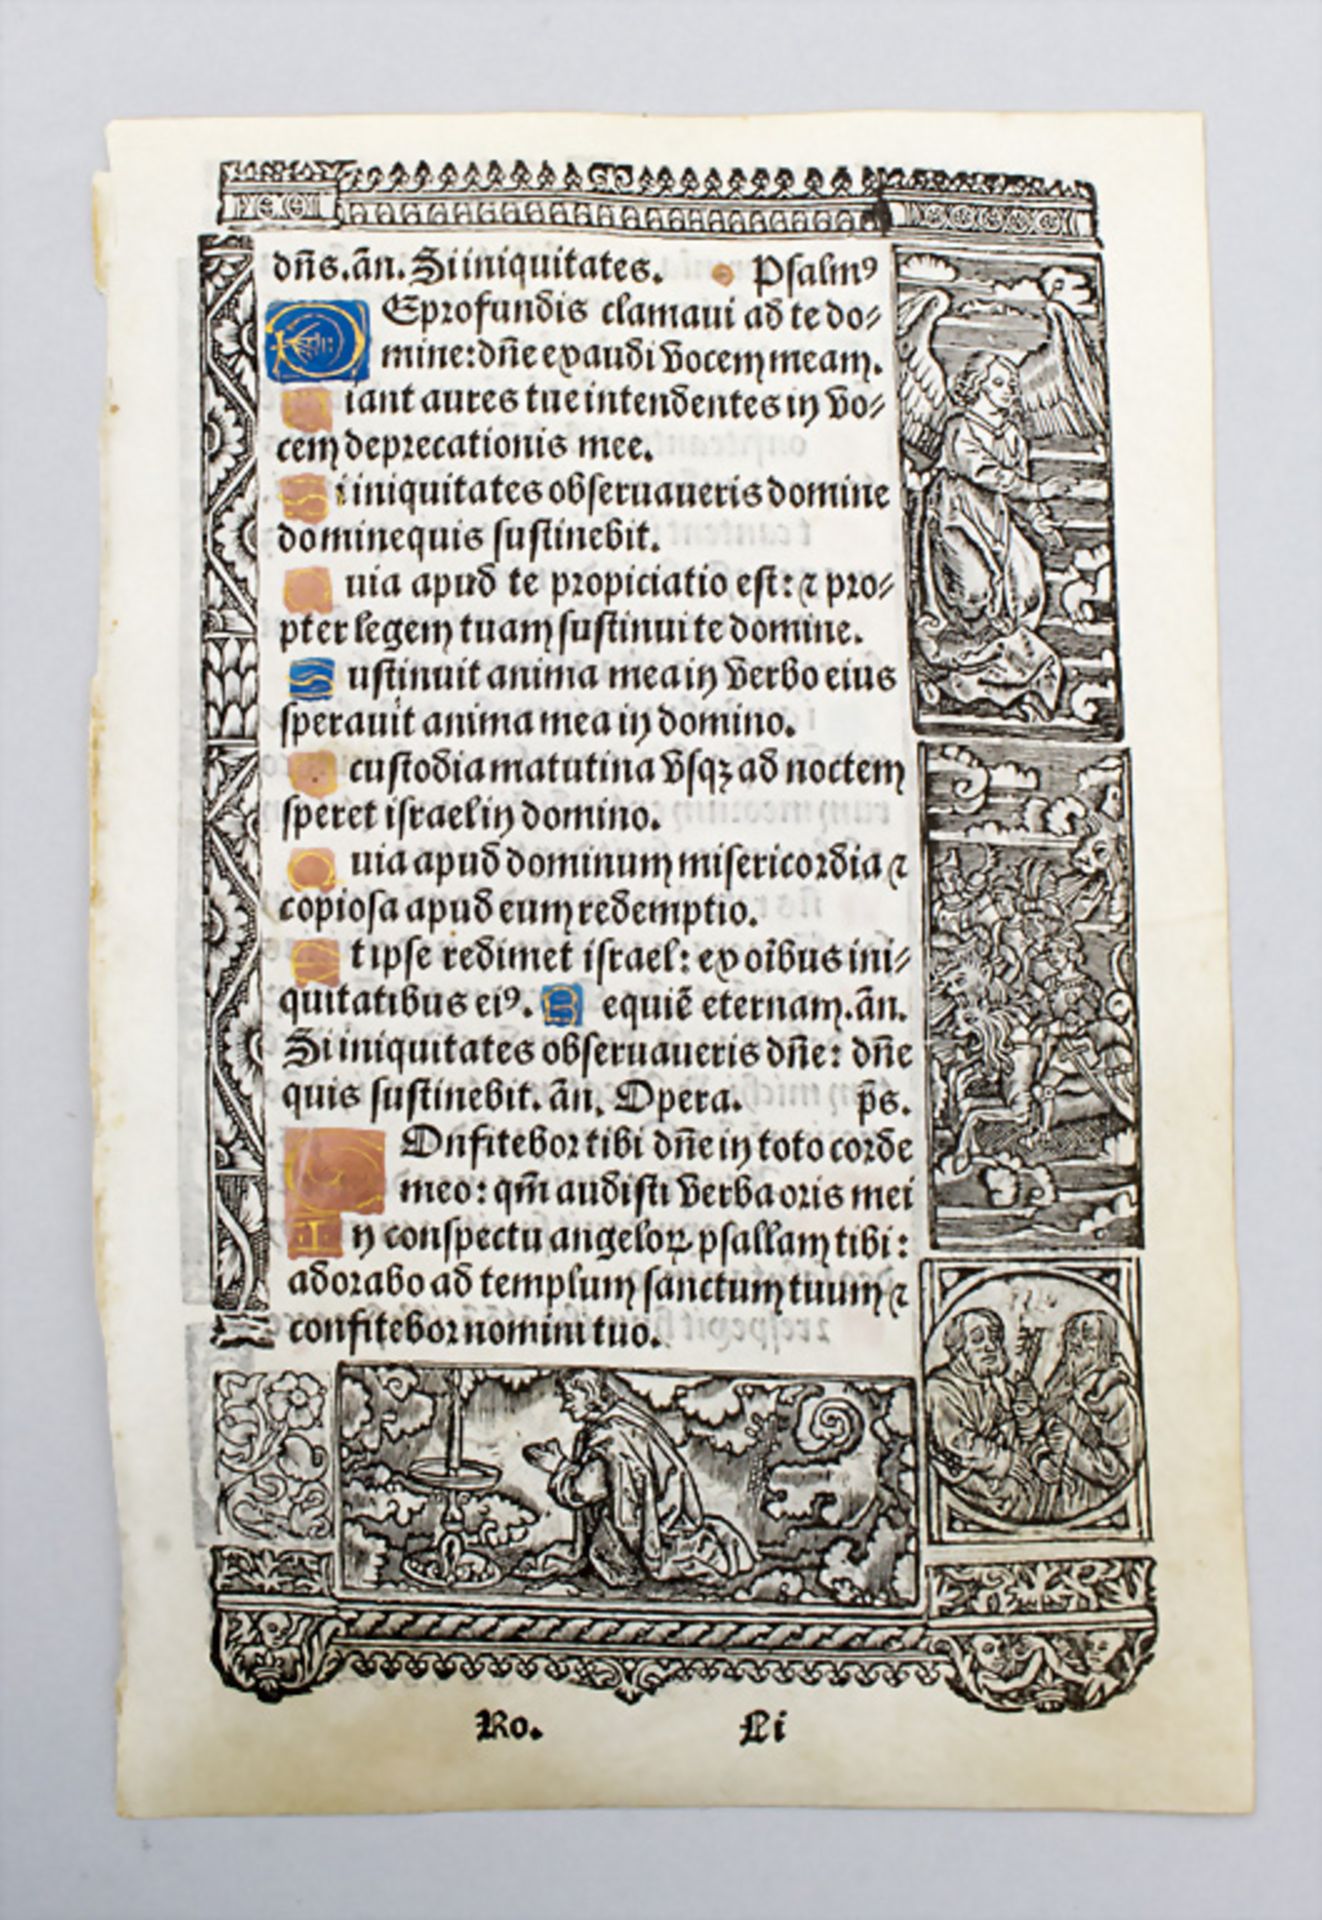 dn̄s. ān. Si iniquitates. Psalmꝰ
DE profundis clamaui ad te do⸗
mine: dn̄e exaudi vocem meam.
Fiant aures tue intendentes in vo⸗
cem deprecationis mee.
Si iniquitates obseruaueris domine
domine quis sustinebit.
Quia apud te propiciatio est: ⁊ pro⸗
pter legem tuam sustinui te domine.
Sustinuit anima mea in verbo eius
sperauit anima mea in domino.
A custodia matutina vsqꝫ ad noctem
speret israel in domino.
Quia apud dominum misericordia ⁊
copiosa apud eum redemptio.
Et ipse redimet israel: ex oībus ini⸗
quitatibus eiꝰ. Requiē eternam. ān.
Si iniquitates obseruaueris dn̄e: dn̄e
quis sustinebit. ān. Opera. p̄s.
COnfitebor tibi dn̄e in toto corde
meo: qm̄ audisti verba oris mei
In conspectu angeloꝝ psallam tibi:
adorabo ad templum sanctum tuum ⁊
confitebor nomini tuo.
Ro. Li